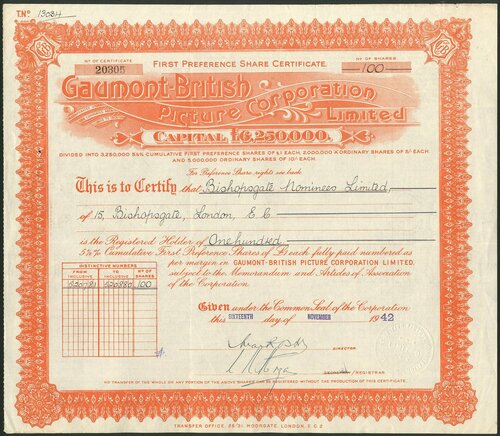 T.No 13084
No OF CERTIFICATE
20305
FIRST PREFERENCE SHARE CERTIFICATE.
No OF SHARES
100
Gaumont-British
Picture Corporation
Limited
CAPITAL £6,250,000.
DIVIDED INTO 3,250,000 5½% CUMULATIVE FIRST PREFERENCE SHARES OF £1 EACH, 2,000,000 "A" ORDINARY SHARES OF 5/- EACH
AND 5,000,000 ORDINARY SHARES OF 10/- EACH.
For Preference Share rights see back
This is to Certify that Bishopsgate Nominees Limited,
of 15, Bishopsgate, London, E.C.
is the Registered Holder of One hundred
5½% Cumulative First Preference Shares of £1 each fully paid numbered as
per margin in GAUMONT-BRITISH PICTURE CORPORATION LIMITED,
subject to the Memorandum and Articles of Association
of the Corporation.
DISTINCTIVE NUMBERS
FROM INCLUSIVE
TO INCLUSIVE
No OF SHARES
100
Given under the Common Seal of the Corporation
this SIXTEENTH day of NOVEMBER 1942
DIRECTOR
SECRETARY/REGISTRAR
NO TRANSFER OF THE WHOLE OR ANY PORTION OF THE ABOVE SHARES CAN BE REGISTERED WITHOUT THE PRODUCTION OF THIS CERTIFICATE.
TRANSFER OFFICE, 25/31, MOORGATE, LONDON, E.C.2